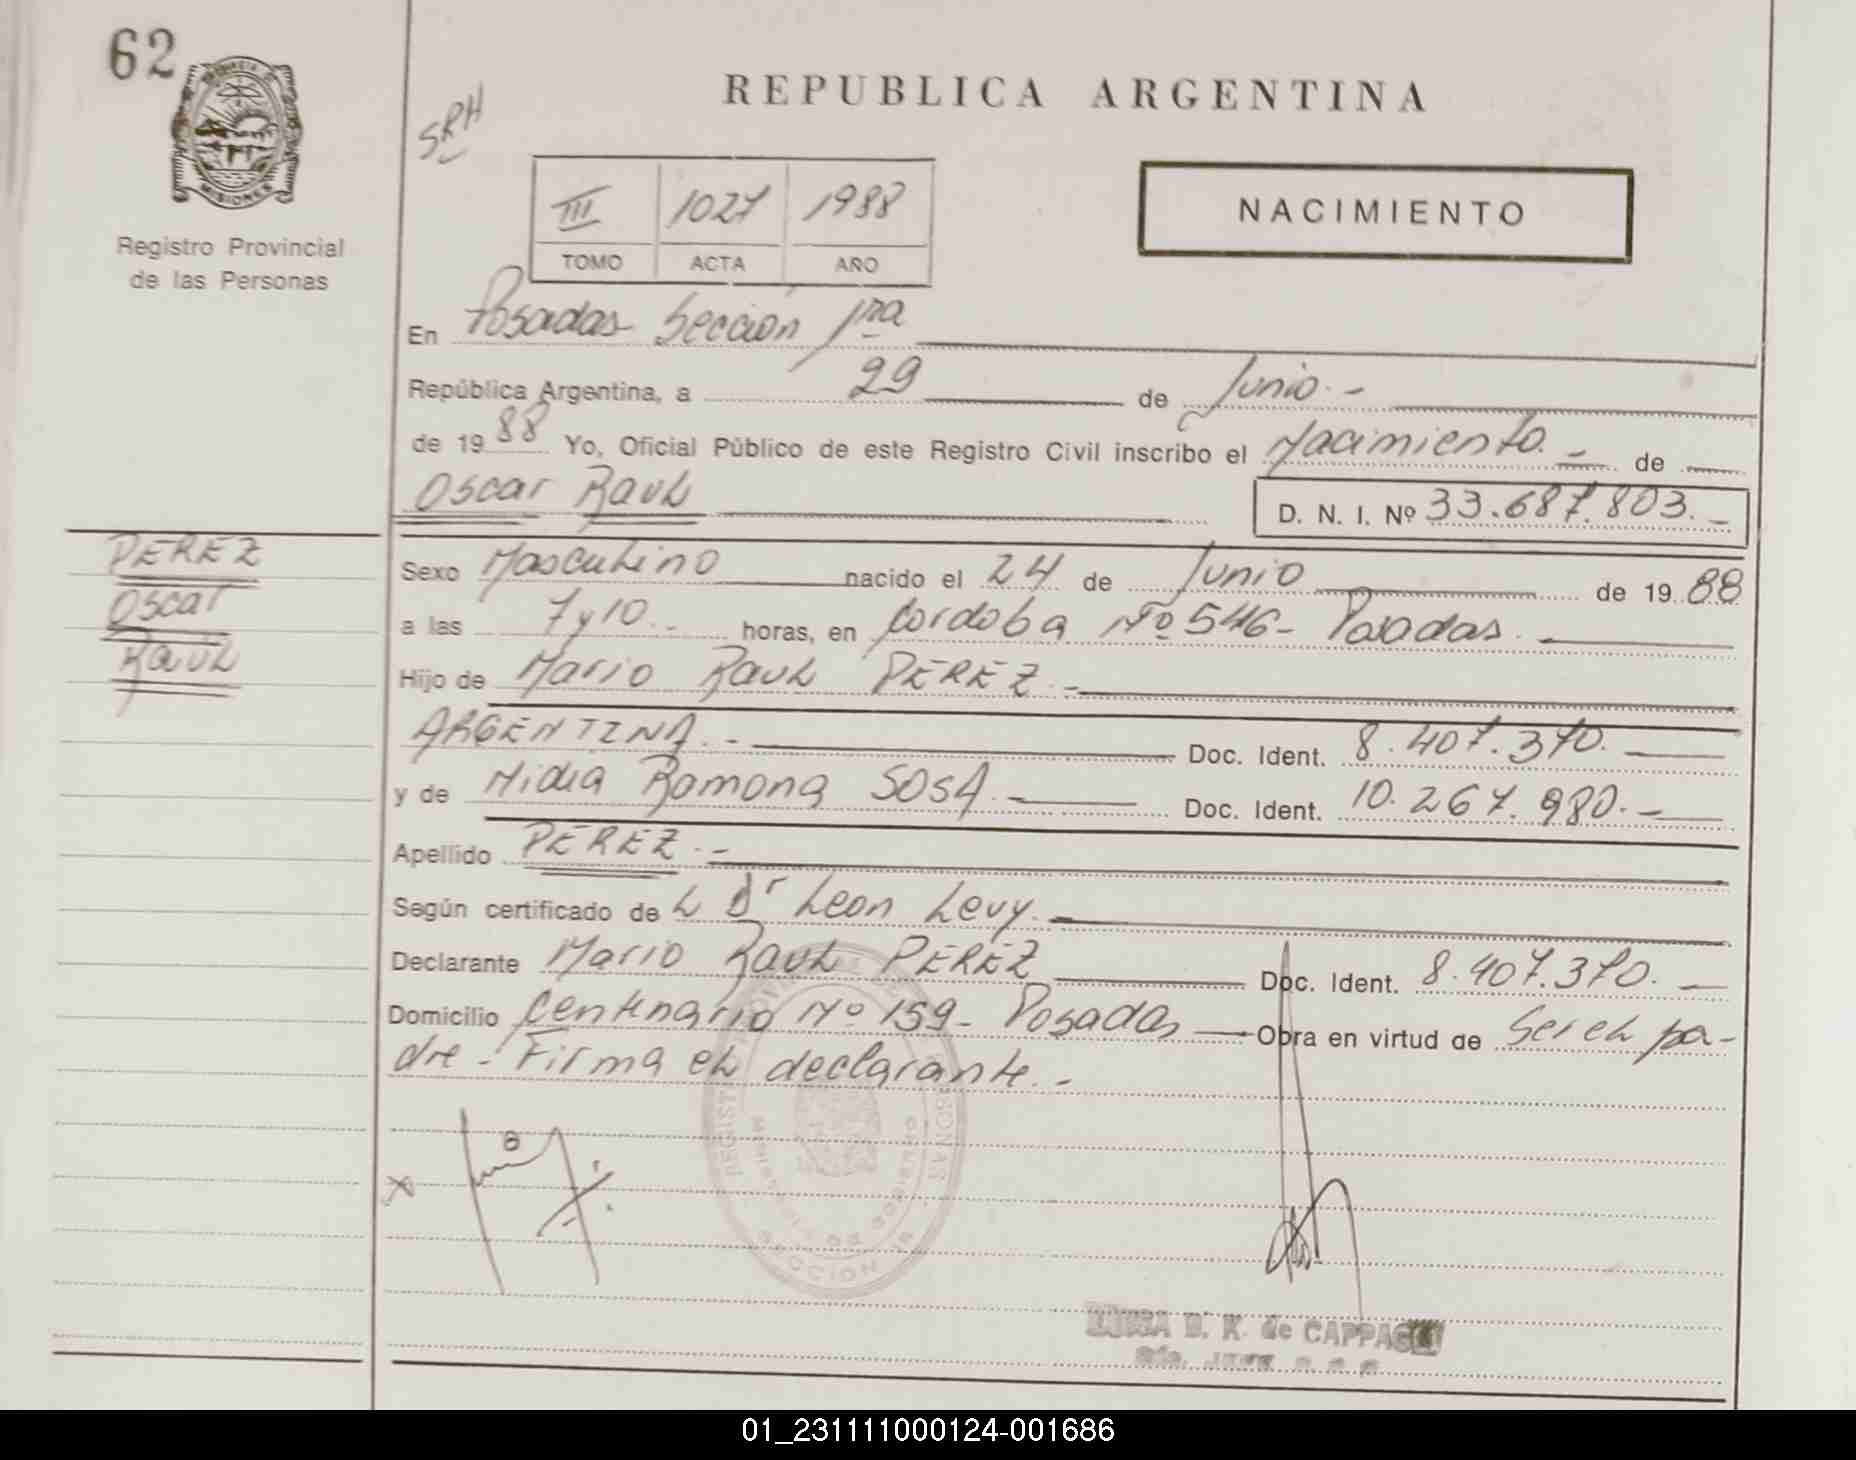 62
PROVINCIA DE
MISIONES
Registro Provincial
de las Personas
SRH
REPUBLICA ARGENTINA
III 1027 1988
TOMO ACTA AÑO
NACIMIENTO
En Posadas Sección 1ra
República Argentina, a 29 de Junio.-
de 1988 Yo, Oficial Público de este Registro Civil inscribo el Nacimiento.- de
Oscar Raul D. N. I. Nº 33.687.803.-
PEREZ
Oscar
Raul
Sexo Masculino nacido el 24 de Junio de 1988
a las 7 y 10.- horas, en Cordoba Nº 546- Posadas.
Hijo de Mario Raul PEREZ.-
ARGENTINA.- Doc. Ident. 8.407.370.
y de Nidia Ramona SOSA.- Doc. Ident. 10.267.980.-
Apellido PEREZ.-
Según certificado de L Dr Leon Levy.
Declarante Mario Raul PEREZ Doc. Ident. 8.407.370.
Domicilio Centenario Nº 159- Posadas Obra en virtud de Ser el pa-
dre- Firma el declarante.-
x
SECCION
D. K. de CAPPAGLI
01_231111000124-001686